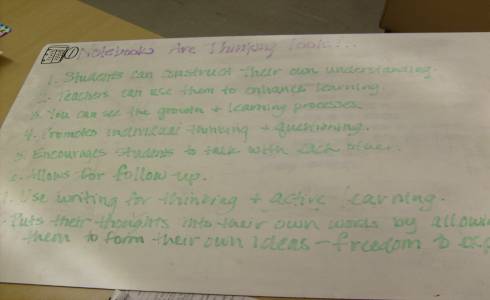 Notebooks Are Thinking Tools...
1. Students can construct their own understanding.
2. Teachers can use them to enhance learning.
3. You can see the growth + learning processes.
4. Promotes individual thinking + questioning.
5. Encourages students to talk with each other.
6. Allows for follow-up.
7. Use writing for thinking + active learning.
Puts their thoughts into their own words by allowing
them to form their own ideas - freedom to